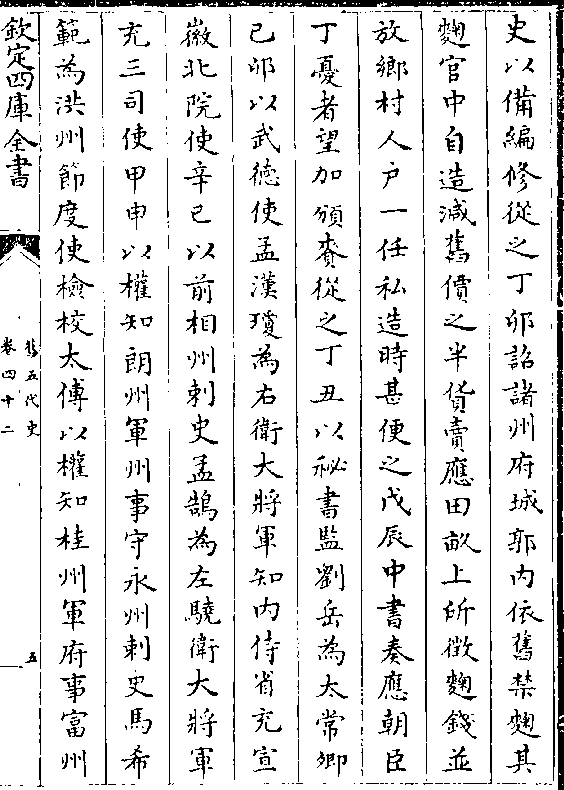 史以備編修從之丁卯詔諸州府城郭內依舊禁麴其
麴官中自造減舊價之半貨賣應田畝上所徵麴錢並
放鄉村人户一任私造時甚便之戊辰中書奏應朝臣
丁憂者望加頒賚從之丁丑以秘書監劉岳為太常卿
己卯以武德使孟漢瓊為右衛大將軍知內侍省充宣
徽北院使辛巳以前相州刺史孟鵠為左驍衛大將軍
充三司使甲申以權知朗州軍州事守永州刺史馬希
範為洪州節度使檢校太傅以權知桂州軍府事富州
欽定四庫全書
舊五代史
卷四十二
五